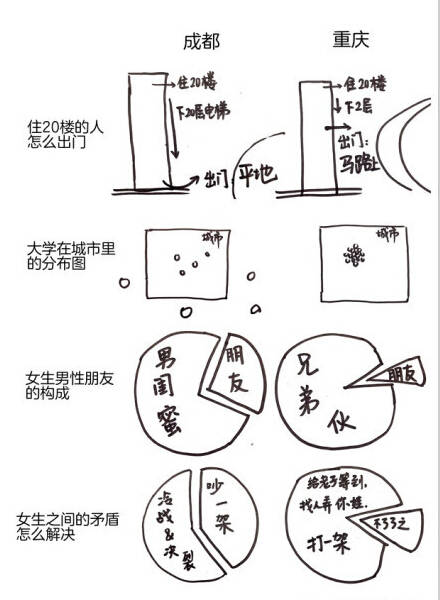 成都
重庆
住20楼的人
怎么出门
住20楼
下20层电梯
出门,平地
住20楼
下2层
出门:
马路上
大学在城市里
的分布图
城市
城市
女生男性朋友
的构成
男闺蜜
朋友
兄弟伙
朋友
女生之间的矛盾
怎么解决
冷战&决裂
吵一架
给老子等到,
找人弄你娃.
打一架
不了了之